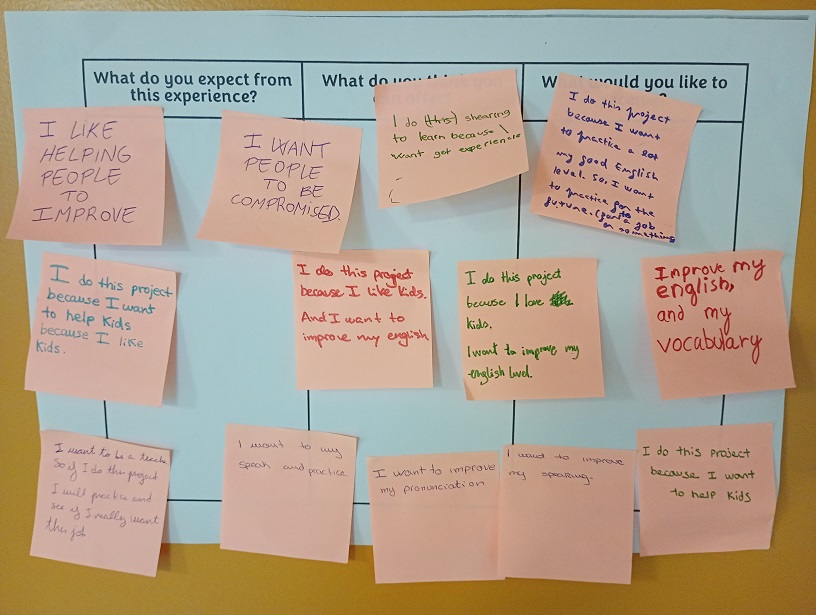 What do you expect from
this experience?
What do you think you
would you like to
I LIKE
HELPING
PEOPLE
TO
IMPROVE
I WANT
PEOPLE
TO BE
COMPROMISED.
I do (this) shearing
to learn because I
want get experience
I do this project
because I want
to practice a lot
my good English
level. So, I want
to practice for the
future. (for a job
or something
I do this project
because I want
to help Kids
because I like
Kids.
I do this project
because I like Kids.
And I want to
improve my english
I do this project
because I love
kids.
I want to improve my
english level.
Improve my
english,
and my
vocabulary
I want to be a teache
So if I do this project
I will practice and
see if I really want
this job
I want to my
speak and practice
I want to improve
my pronunciation
I want to improve
my speaking.
I do this project
because I want
to help Kids